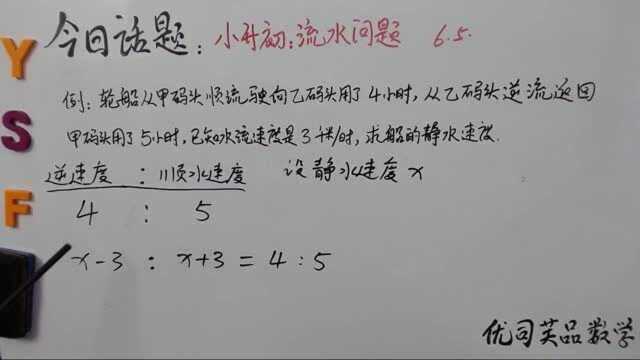 今日话题：小升初：流水问题 6.5.
例：轮船从甲码头顺流驶向乙码头用了4小时，从乙码头逆流返回
甲码头用了5小时，已知水流速度是3千米/时，求船的静水速度.
逆速度 : 顺水速度 设静水速度x
4 : 5
x-3 : x+3 = 4 : 5
Y
S
F
优司芙品数学